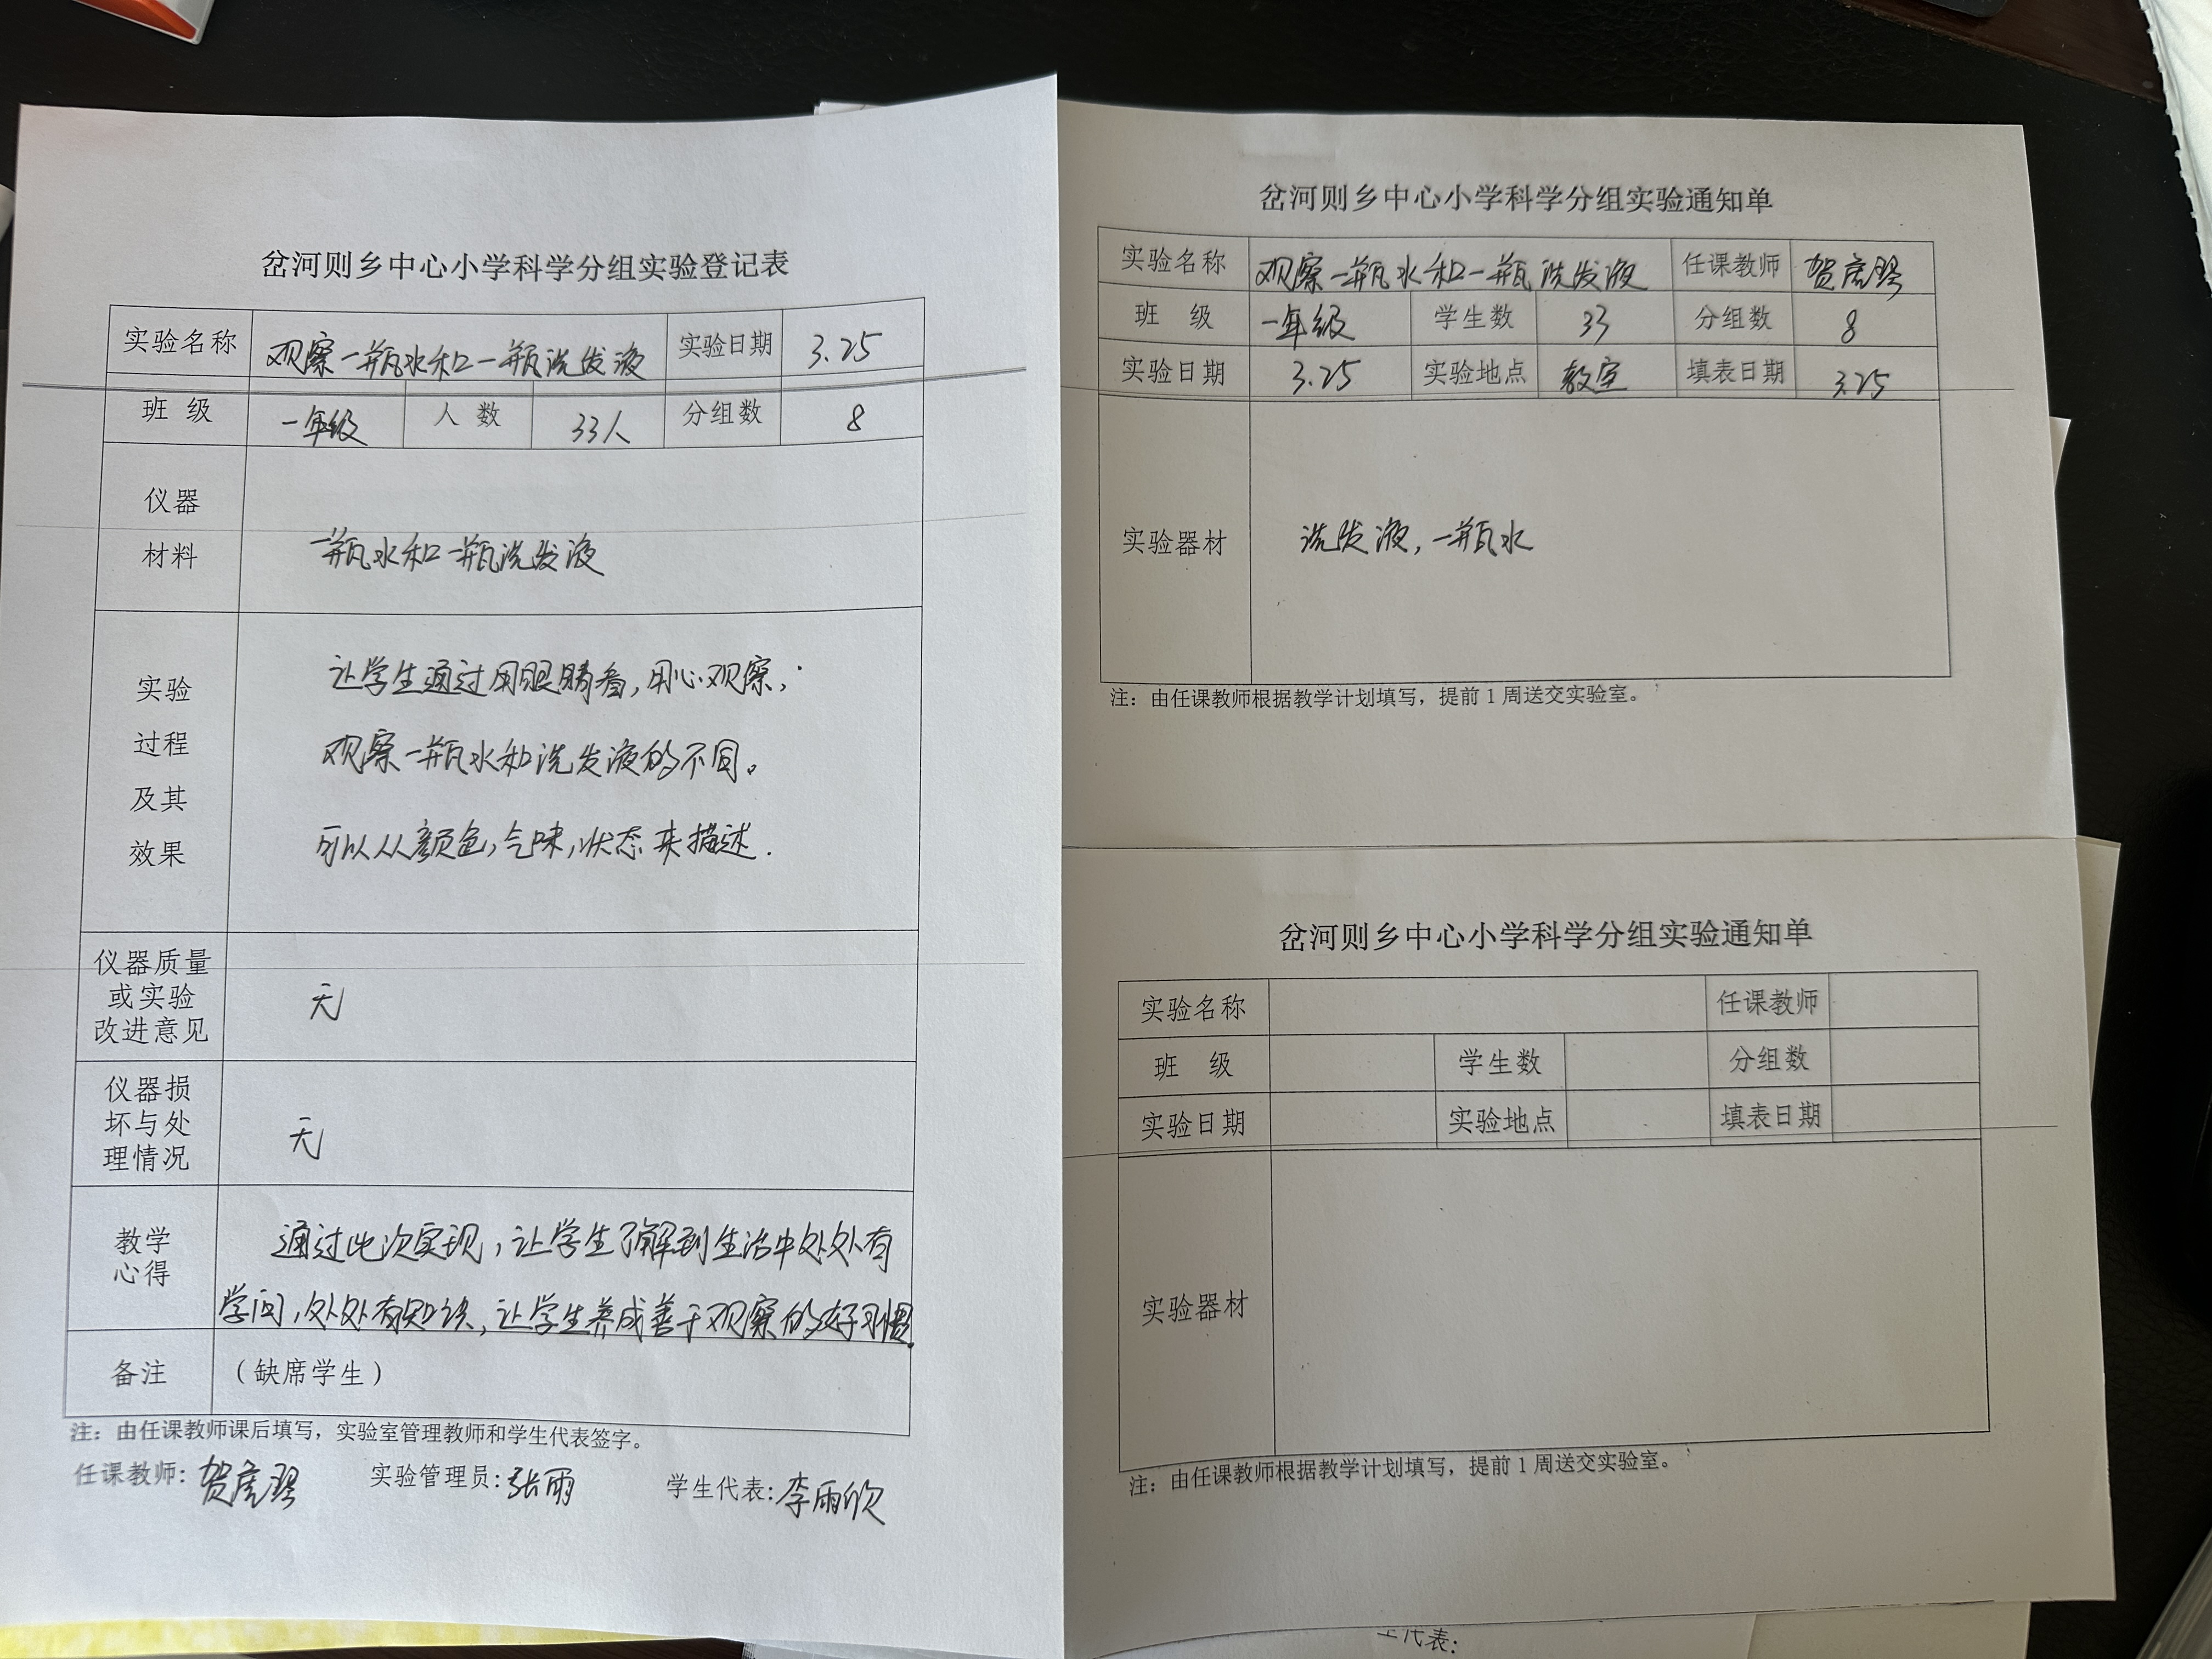 岔河则乡中心小学科学分组实验登记表
实验名称 观察一瓶水和一瓶洗发液 实验日期 3.25
班 级 一年级 人 数 33人 分组数 8
仪器
材料
一瓶水和一瓶洗发液
实验
过程
及其
效果
让学生通过用眼睛看,用心观察;
观察一瓶水和洗发液的不同。
可以从颜色,气味,状态来描述.
仪器质量
或实验
改进意见
无
仪器损
坏与处
理情况
无
教学
心得
通过此次实现,让学生了解到生活中处处有
学问,处处有知识,让学生养成善于观察的好习惯.
备注 (缺席学生)
注:由任课教师课后填写,实验室管理教师和学生代表签字。
任课教师:贺虎 实验管理员:张雨 学生代表:李雨欣
岔河则乡中心小学科学分组实验通知单
实验名称 观察一瓶水和一瓶洗发液 任课教师 贺虎
班 级 一年级 学生数 33 分组数 8
实验日期 3.25 实验地点 教室 填表日期 3.25
实验器材 洗发液,一瓶水
注:由任课教师根据教学计划填写,提前1周送交实验室。
岔河则乡中心小学科学分组实验通知单
实验名称 任课教师
班 级 学生数 分组数
实验日期 实验地点 填表日期
实验器材
注:由任课教师根据教学计划填写,提前1周送交实验室。
生代表: